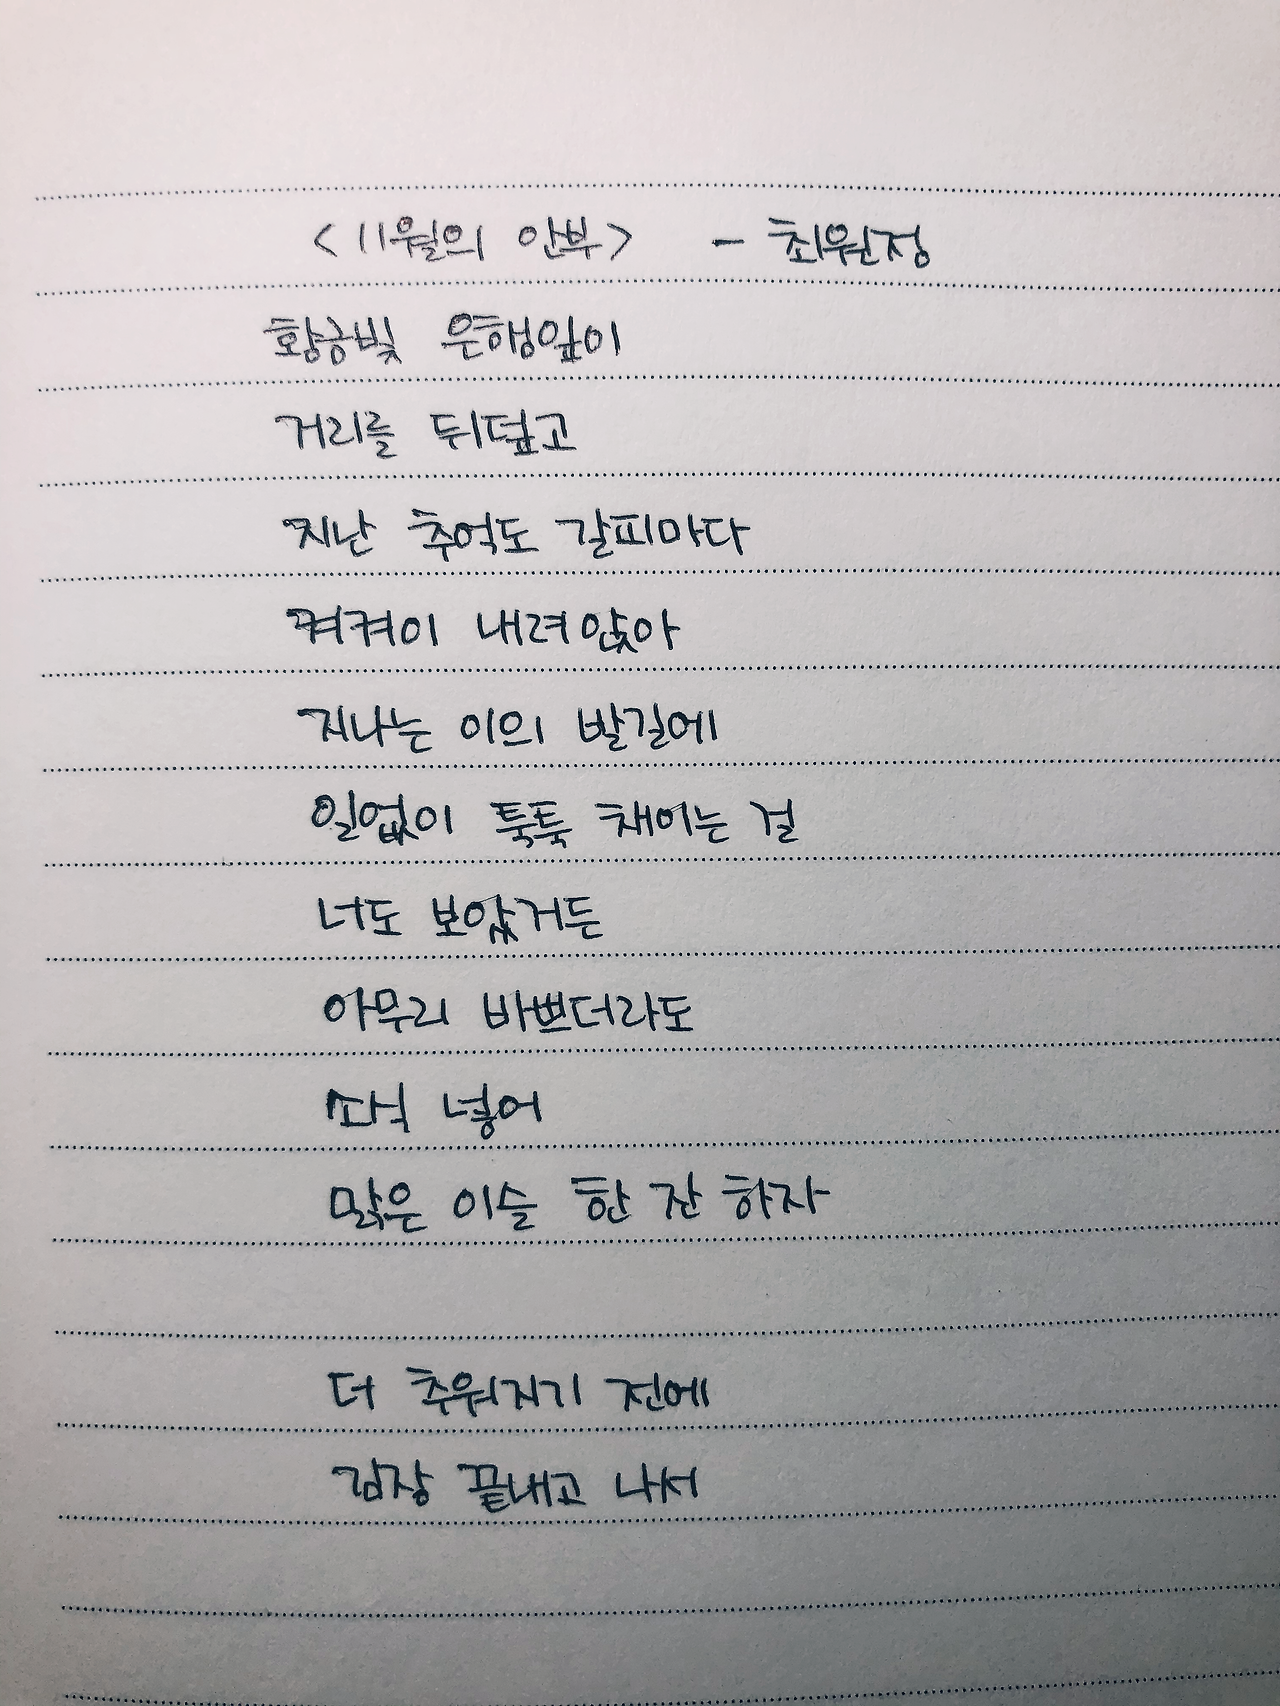 <11월의 안부> - 최원정
황금빛 은행잎이
거리를 뒤덮고
지난 추억도 갈피마다
켜켜이 내려앉아
지나는 이의 발길에
일없이 툭툭 채이는 걸
너도 보았거든
아무리 바쁘더라도
소식 넣어
맑은 이슬 한 잔 하자
더 추워지기 전에
김장 끝내고 나서